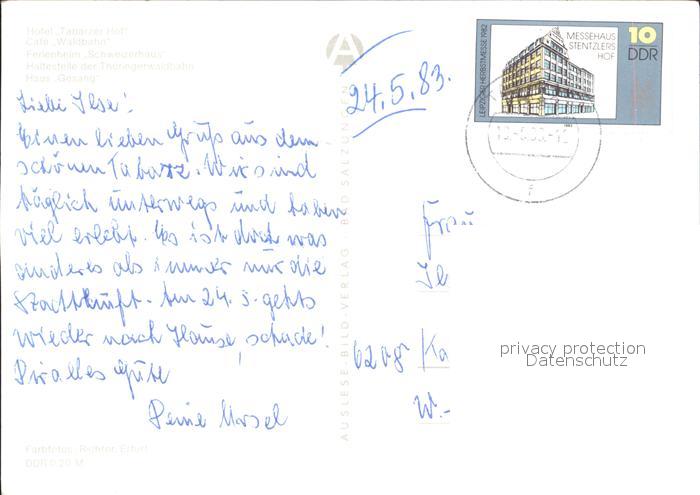 Hotel „Tabarzer Hof"
Café „Waldbahn"
Ferienheim „Schweizerhaus"
Haltestelle der Thüringerwaldbahn
Haus „Gesang"
24.5.83.
Liebe Ilse!
Einen lieben Gruß aus dem
schönen Tabarz. Wir sind
täglich unterwegs und haben
viel erlebt. Es ist doch was
anderes als immer nur die
Stadtluft. Am 24. 5. gehts
wieder nach Hause, schade!
Dir alles Gute
Deine Ursel
Farbfotos: Richter, Erfurt
DDR 0,20 M
AUSLESE-BILD-VERLAG BAD SALZUNGEN
LEIPZIGER HERBSTMESSE 1982
MESSEHAUS
STENTZLERS
HOF
10
DDR
Frau
Il
6208 Ka
W.-
privacy protection
Datenschutz